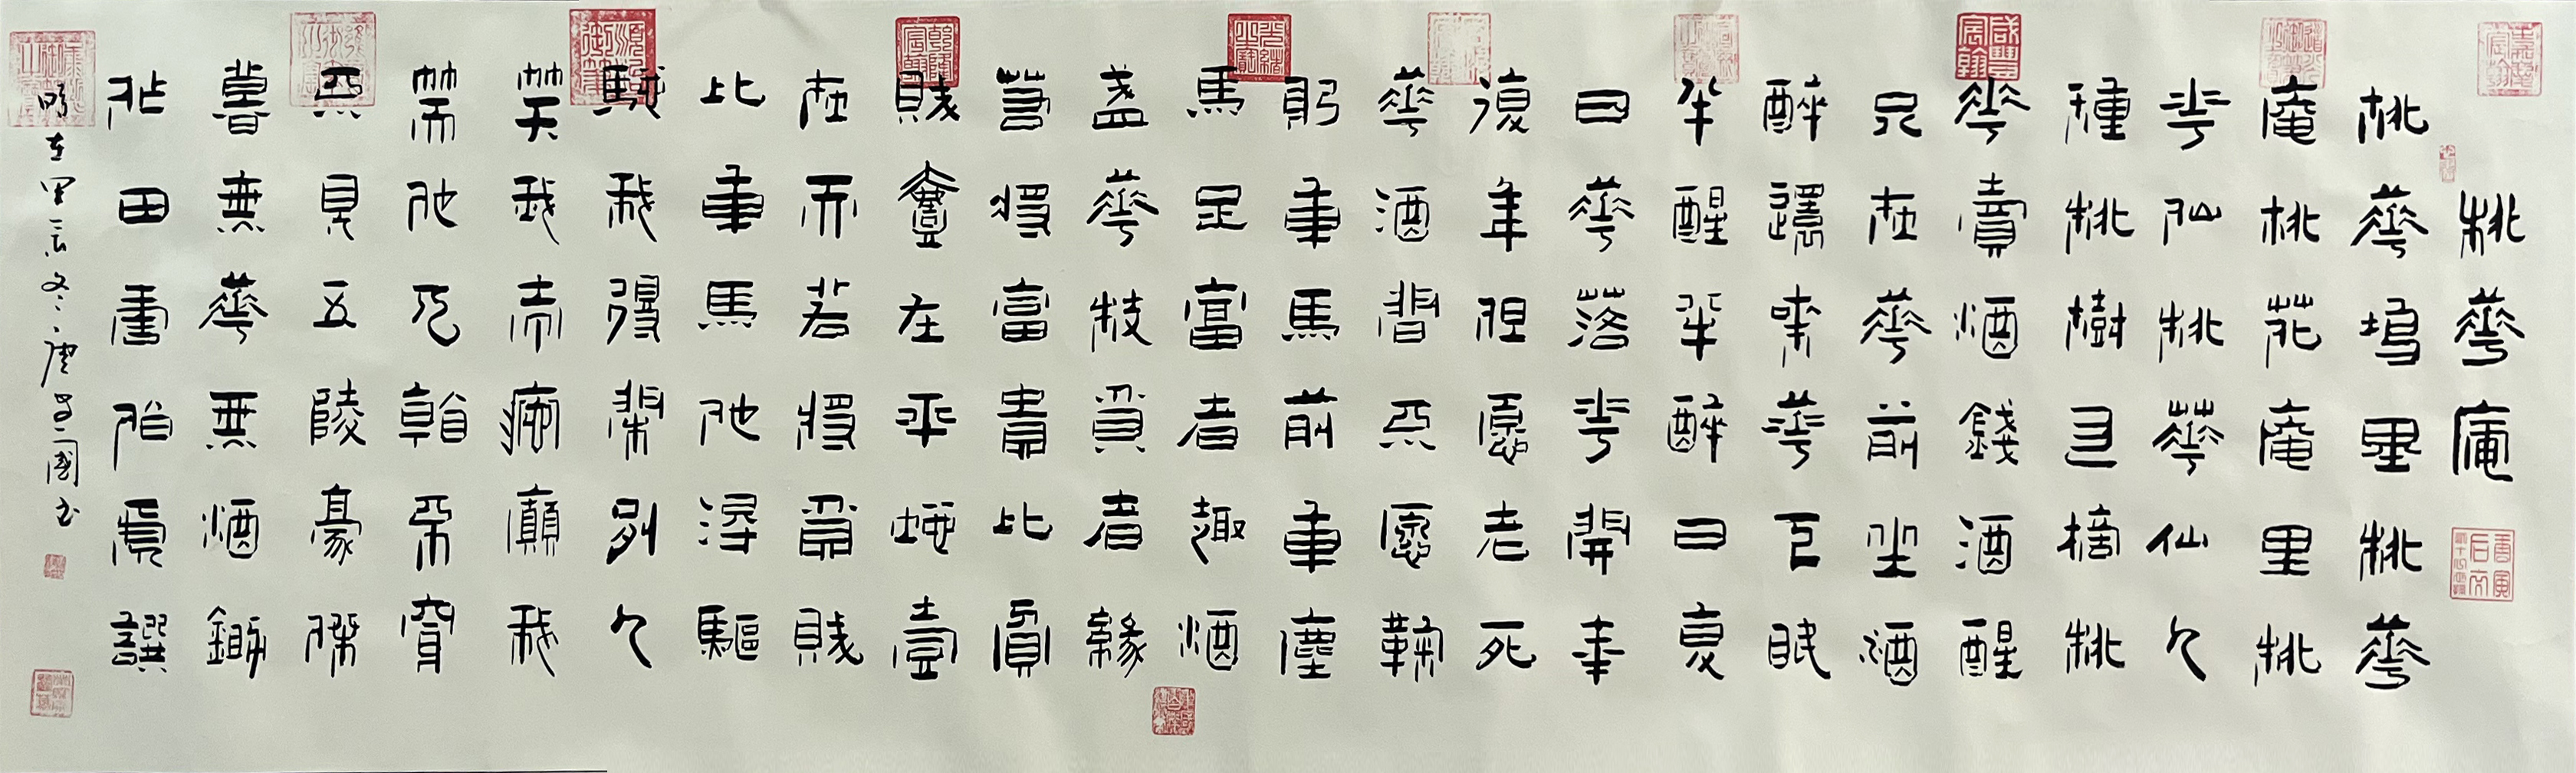 桃華庵
桃華塢里桃華
庵桃花庵里桃
華仙桃華仙人
種桃樹又摘桃
華賣酒錢酒醒
只在華前坐酒
醉還來華下眠
半醒半醉日復
日華落華開年
復年但願老死
華酒間不願鞠
躬車馬前車塵
馬足富者趣酒
盞華枝貧者緣
若將富貴比貧
賤壹在平地壹
在天若將貧賤
比車馬他得驅
馳我得閑別人
笑我忒瘋癲我
笑他人看不穿
不見五陵豪傑
墓無華無酒鋤
作田唐伯虎撰
時在甲辰冬唐國書